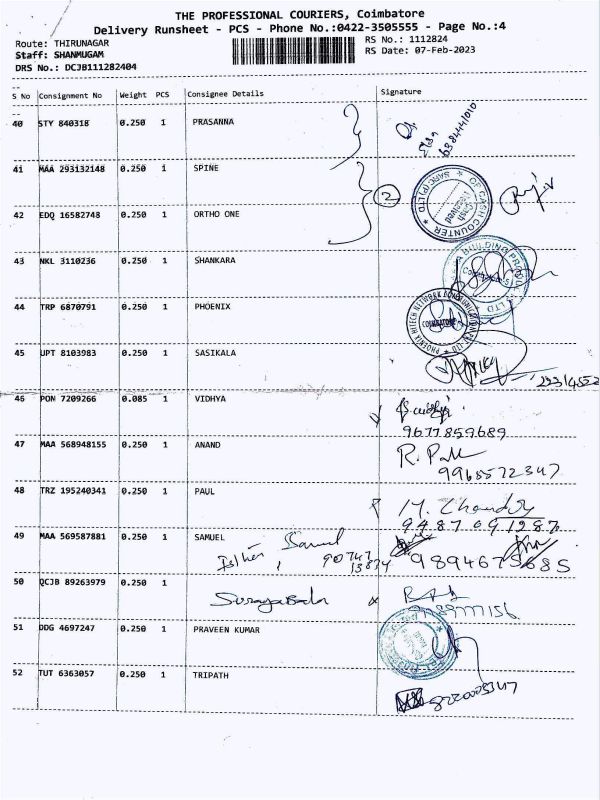 THE PROFESSIONAL COURIERS, Coimbatore
Delivery Runsheet - PCS - Phone No.:0422-3505555 - Page No.:4
Route: THIRUNAGAR RS No.: 1112824
Staff: SHANMUGAM RS Date: 07-Feb-2023
DRS No.: DCJB111282404
S No Consignment No Weight PCS Consignee Details Signature
40 STY 840318 0.250 1 PRASANNA
6384441010
41 MAA 293132148 0.250 1 SPINE
2
OF CASH COUNTER
42 EDQ 16582748 0.250 1 ORTHO ONE
43 NKL 3110236 0.250 1 SHANKARA
44 TRP 6870791 0.250 1 PHOENIX
PHOENIX HITECH NETWORK
COIMBATORE
45 UPT 8103983 0.250 1 SASIKALA
46 PON 7209266 0.085 1 VIDHYA
9677859689
47 MAA 568948155 0.250 1 ANAND
R.
9965572347
48 TRZ 195240341 0.250 1 PAUL
9487091287
49 MAA 569587881 0.250 1 SAMUEL
Esther Samuel
50 QCJB 89263979 0.250 1
51 DDG 4697247 0.250 1 PRAVEEN KUMAR
52 TUT 6363057 0.250 1 TRIPATH